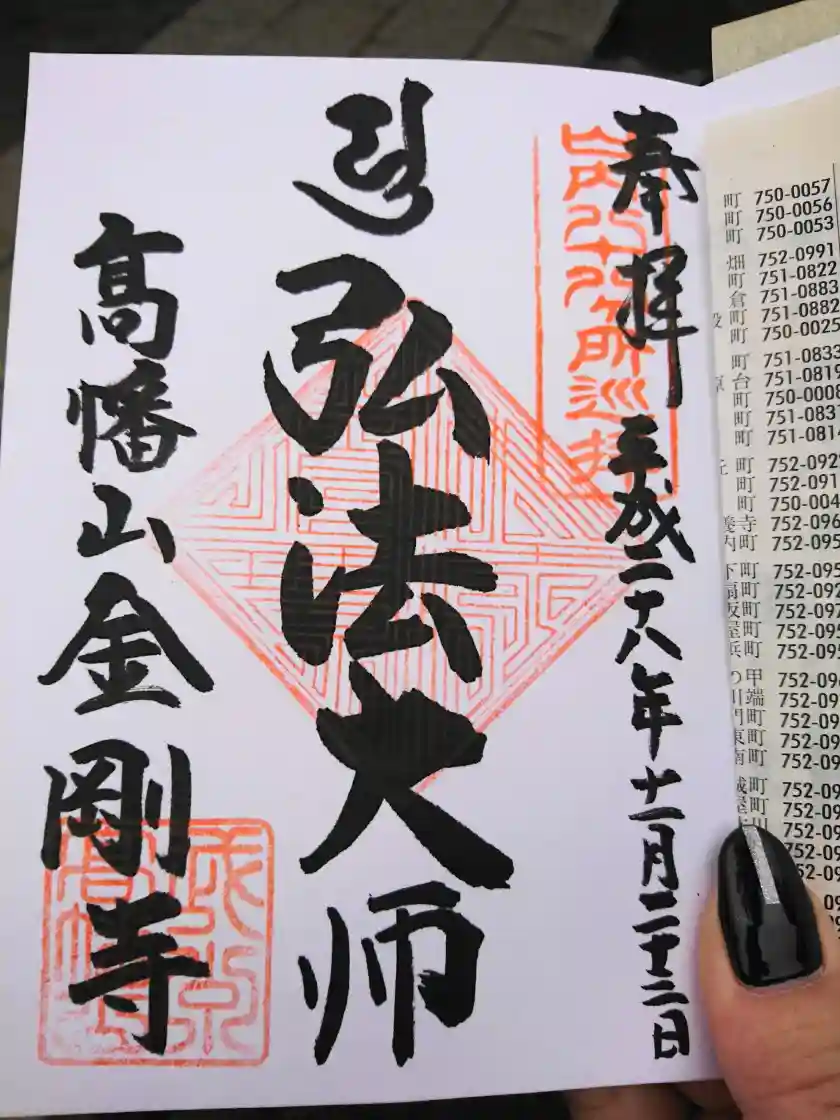 奉拝 平成二十八年十一月二十三日
山内八十八
所巡拝
弘法大师
髙幡山金剛寺
町 750-0057
町 750-0056
町 750-0053
畑 752-0991
町 751-0822
倉 751-0883
町 751-0882
町 750-0025
町 751-0833
台 751-0819
町 750-000
町 751-083
町 751-081
町 752-092
町 752-091
町 750-004
寺 752-098
内町 752-095
下町 752-095
町 752-092
町 752-092
屋町 752-09
浜町 752-095
の甲 752-09
川端 752-09
門町 752-09
東町 752-09
南町 752-09
町 752-09
屋町 752-09
752-09